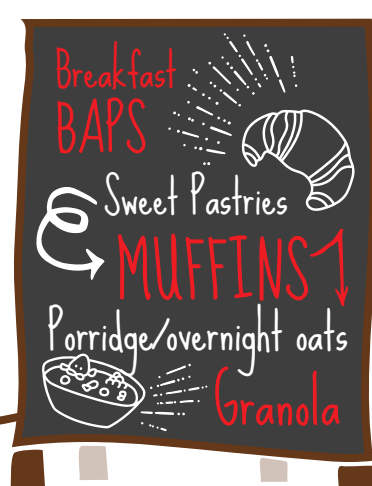 Breakfast
BAPS
Sweet Pastries
MUFFINS
Porridge/overnight oats
Granola